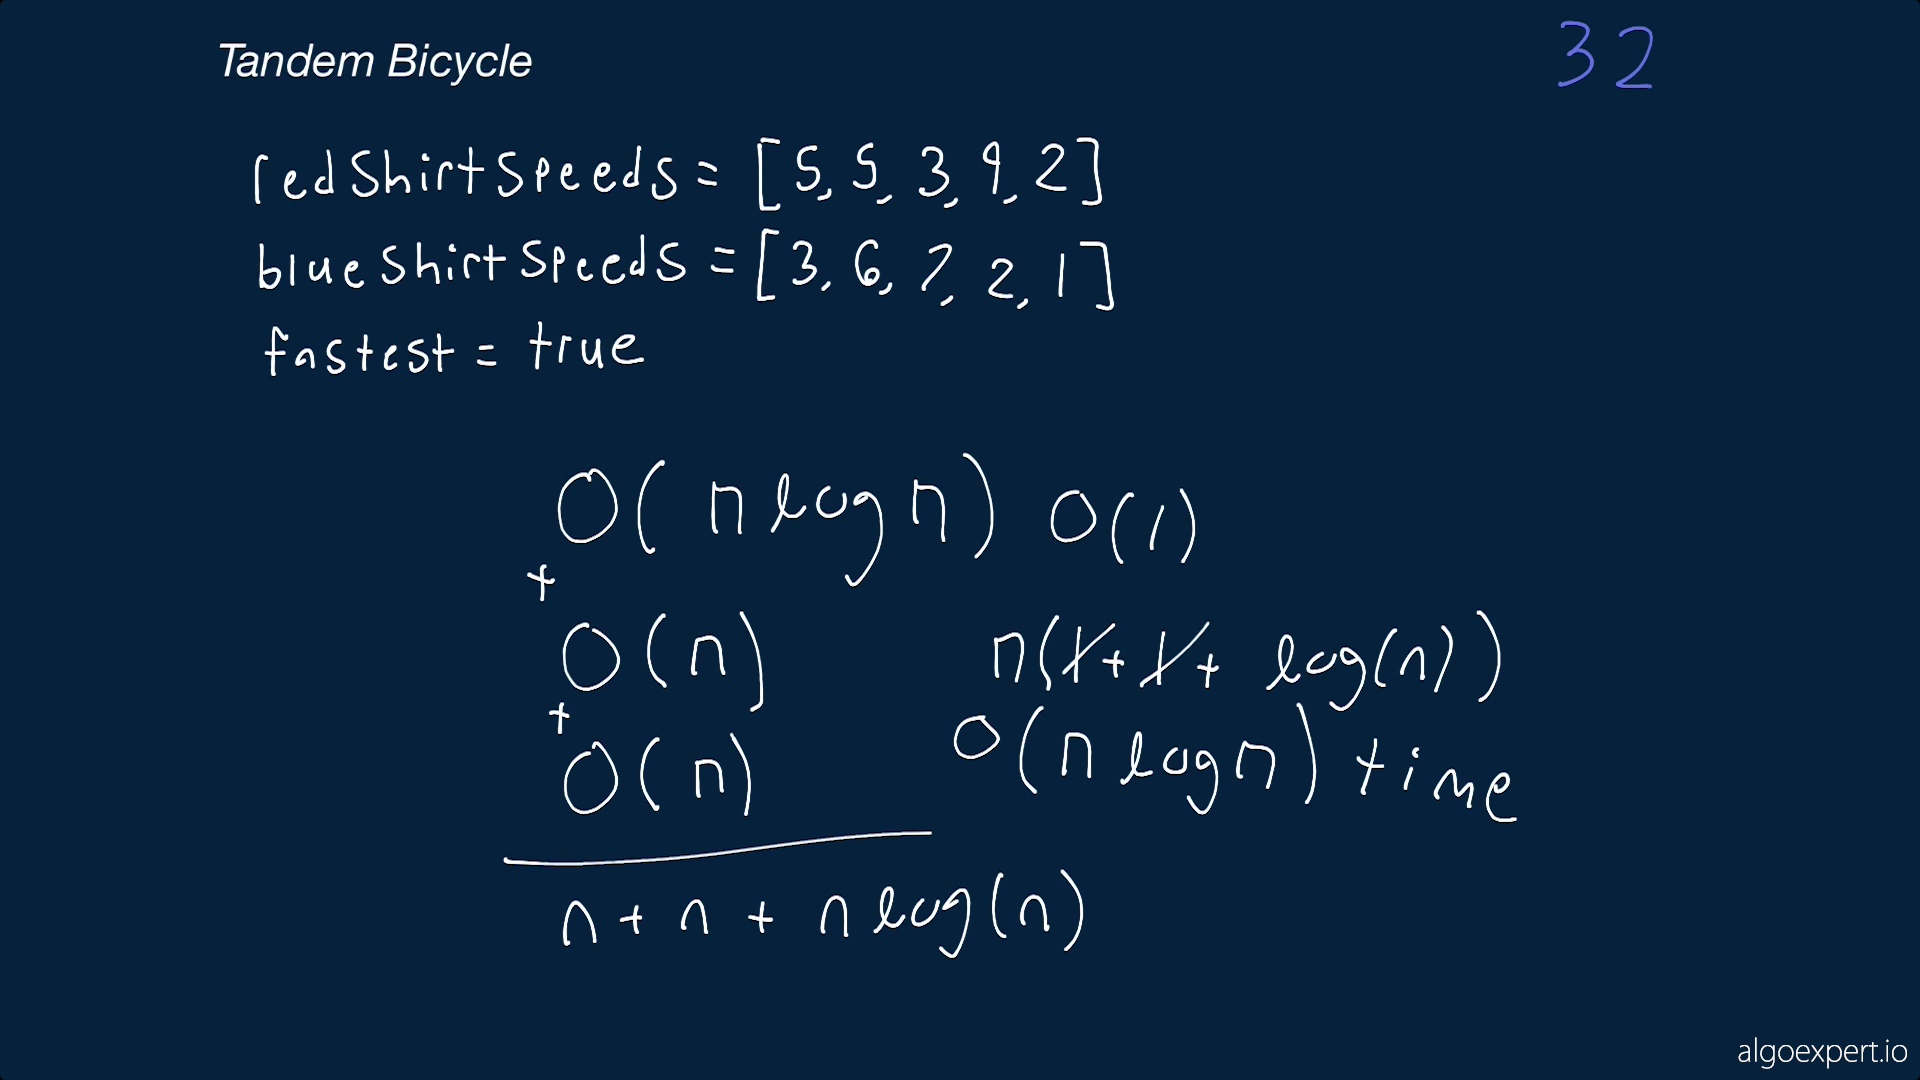 Tandem Bicycle
32
redShirtSpeeds = [5, 5, 3, 9, 2]
blueShirtSpeeds = [3, 6, 7, 2, 1]
fastest = true
O(n log n) O(1)
+
O(n) n(1 + 1 + log(n))
+
O(n) O(n log n) time
n + n + n log(n)
algoexpert.io